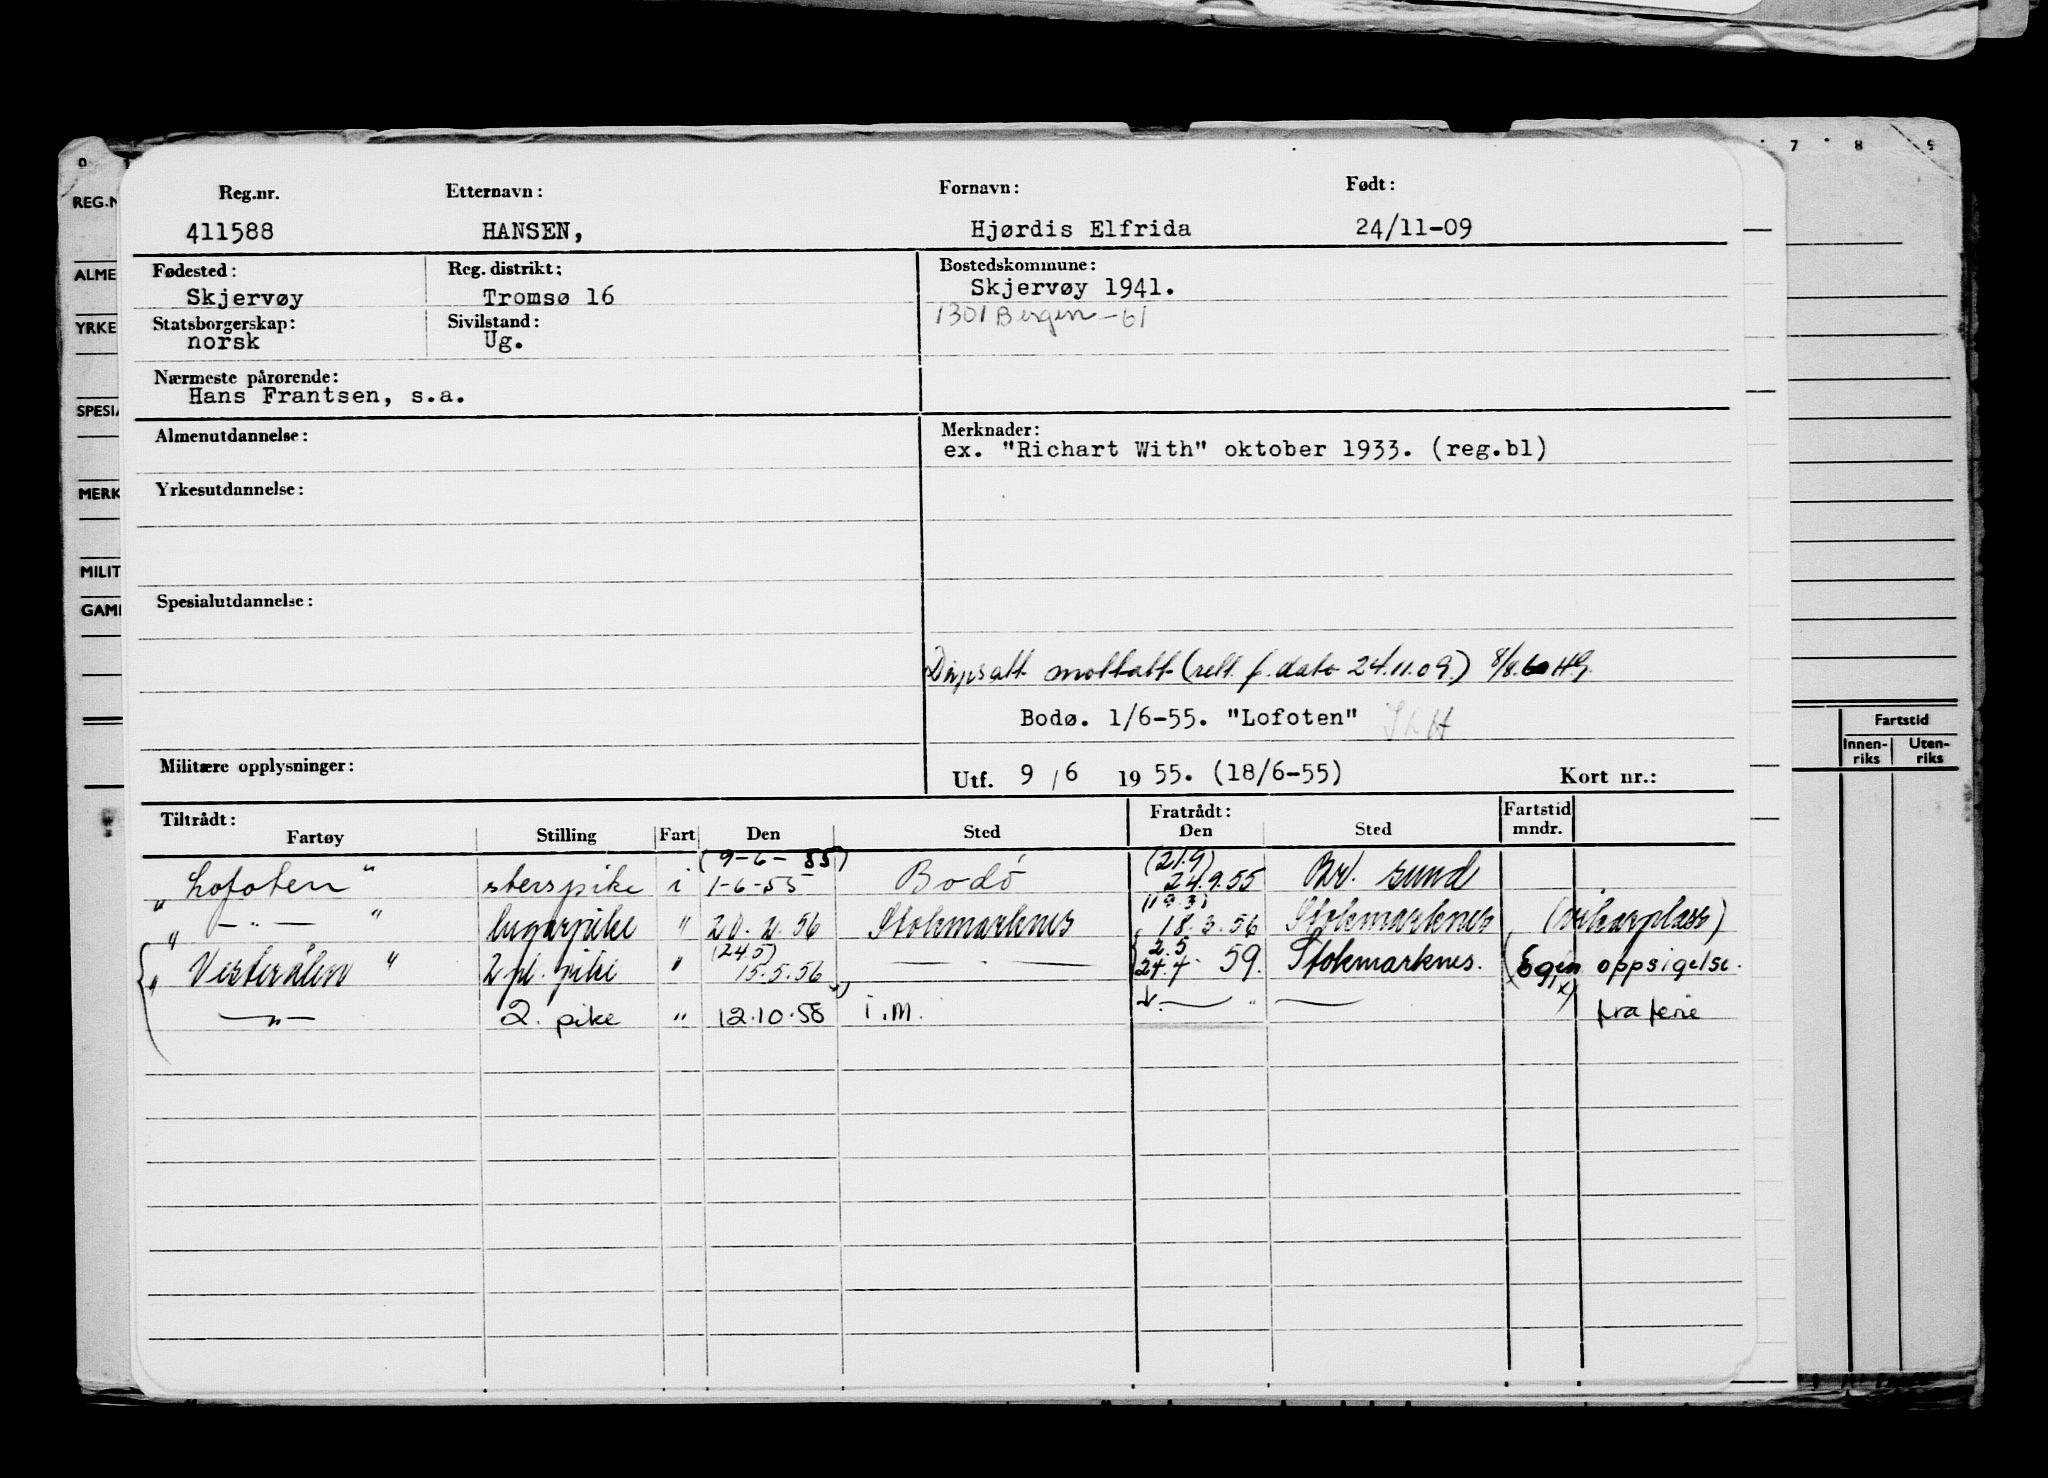 0 7 8 9
Reg.nr. Etternavn: Fornavn: Født:
REG.N
411588 HANSEN, Hjørdis Elfrida 24/11-09
Fødested: Reg. distrikt: Bostedskommune:
ALME
Skjervøy Tromsø 16 Skjervøy 1941.
Statsborgerskap: Sivilstand: 1301 Bergen -61
YRKE
norsk Ug.
Nærmeste pårørende:
Hans Frantsen, s.a.
SPESIA
Almenutdannelse: Merknader:
ex. "Richart With" oktober 1933. (reg.bl)
MERK
Yrkesutdannelse:
MILIT
Spesialutdannelse:
GAMI
Disps att mottatt (rett f. dato 24.11.09) 8/8.60 HG.
Bodø. 1/6-55. "Lofoten"
Fartstid
Innen- riks Uten- riks
Militære opplysninger: Utf. 9 / 6 19 55. (18/6-55) Kort nr.:
Tiltrådt: Fratrådt: Fartstid mndr.
Fartøy Stilling Fart Den Sted Den Sted
(9-6-55) (21.9)
"Lofoten" sterspike i 1-6-55 Bodó 24.9.55 Br. sund
(19.3)
" — " — " lugarpike " 20.2.56 Stokmarknes 18.3.56 Stokmarknes (vikarplass)
(24.5) 2.5
"Vesterålen" 2 pl. pike " 15.5.56 — " — 24.4. 59. Stokmarknes. (Egen oppsigelse.
— " — 2. pike " 12.10.58 i.m. — " — fra ferie